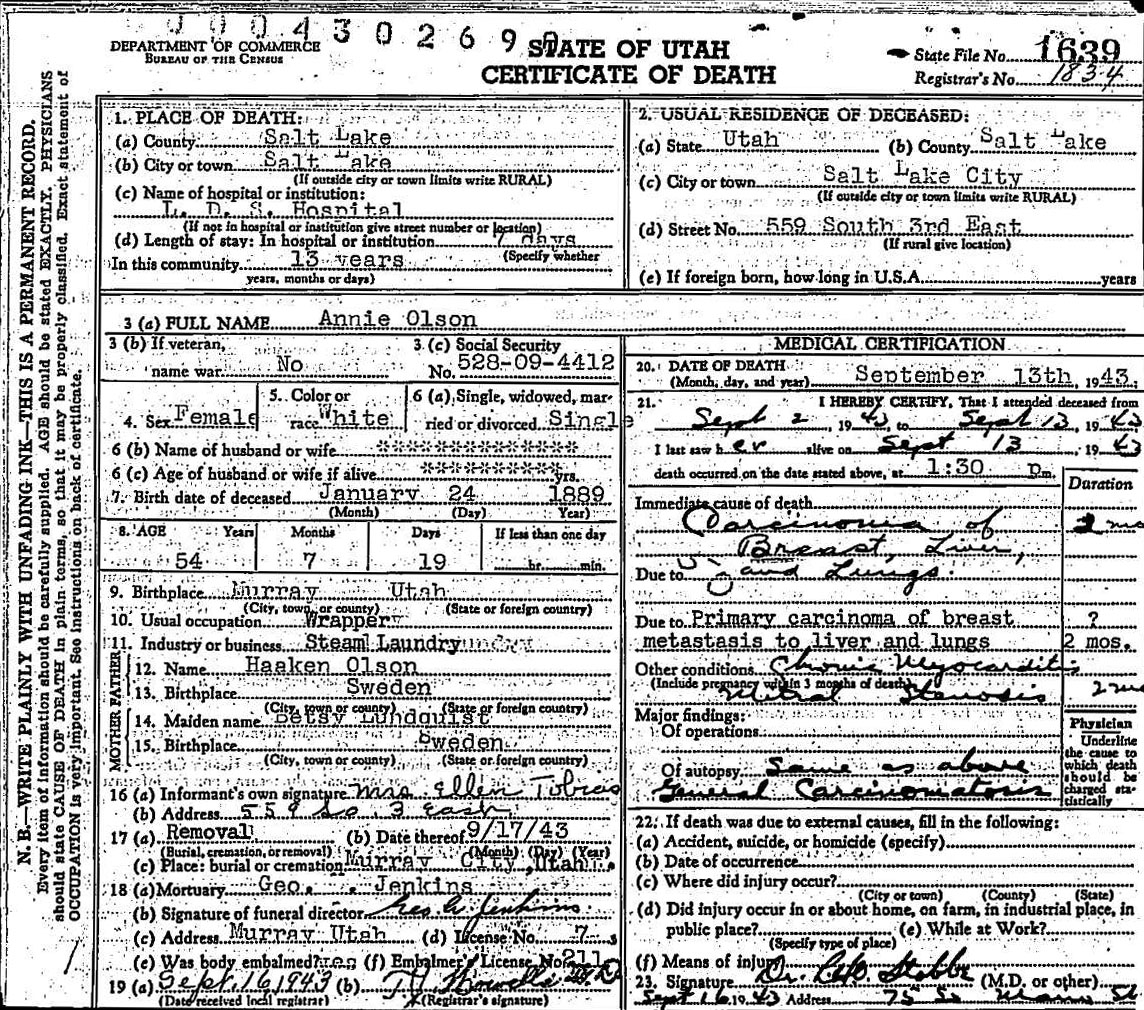 0 0 0 4 3 0 2 6 9
DEPARTMENT OF COMMERCE
BUREAU OF THE CENSUS
STATE OF UTAH
CERTIFICATE OF DEATH
State File No. 1639
Registrar's No. 1834
N. B.—WRITE PLAINLY WITH UNFADING INK—THIS IS A PERMANENT RECORD.
Every item of information should be carefully supplied. AGE should be stated EXACTLY. PHYSICIANS
should state CAUSE OF DEATH in plain terms, so that it may be properly classified. Exact statement of
OCCUPATION is very important. See instructions on back of certificate.
1. PLACE OF DEATH:
(a) County Salt Lake
(b) City or town Salt Lake
(If outside city or town limits write RURAL)
(c) Name of hospital or institution:
L. D. S. Hospital
(If not in hospital or institution give street number or location)
(d) Length of stay: In hospital or institution 7 days
(Specify whether
In this community 13 years
years, months or days)
2. USUAL RESIDENCE OF DECEASED:
(a) State Utah (b) County Salt Lake
(c) City or town Salt Lake City
(If outside city or town limits write RURAL)
(d) Street No. 559 South 3rd East
(If rural give location)
(e) If foreign born, how long in U.S.A. years
3 (a) FULL NAME Annie Olson
3 (b) If veteran,
name war No
3. (c) Social Security
No. 528-09-4412
4. Sex Female
5. Color or
race White
6 (a) Single, widowed, mar-
ried or divorced Single
6 (b) Name of husband or wife ***************
6 (c) Age of husband or wife if alive *************yrs.
7. Birth date of deceased January 24 1889
(Month) (Day) Year)
8. AGE Years Months Days If less than one day
54 7 19 hr. min.
9. Birthplace Murray Utah
(City, town, or county) (State or foreign country)
10. Usual occupation Wrapper
11. Industry or business Steam Laundry
FATHER
12. Name Haaken Olson
13. Birthplace Sweden
(City, town or county) (State or foreign country)
MOTHER
14. Maiden name Betsy Lundquist
15. Birthplace Sweden
(City, town or county) (State or foreign country)
16 (a) Informant's own signature Mrs Ellen Tobias
(b) Address 559 So. 3 East
17 (a) Removal (b) Date thereof 9/17/43
(Burial, cremation, or removal) (Month) (Day) (Year)
(c) Place: burial or cremation Murray City, Utah
18 (a) Mortuary Geo. Jenkins
(b) Signature of funeral director Geo W Jenkins
(c) Address Murray Utah (d) License No. 7
(e) Was body embalmed? yes (f) Embalmer's License No. 211
19 (a) Sept. 16 1943 (b) M.D.
(Date received local registrar) (Registrar's signature)
MEDICAL CERTIFICATION
20. DATE OF DEATH
(Month, day, and year) September 13th, 1943.
21. I HEREBY CERTIFY, That I attended deceased from
Sept 2, 1943, to Sept 13, 1943
I last saw her alive on Sept 13 1943
death occurred on the date stated above, at 1:30 p.m.
Duration
Immediate cause of death
Carcinoma of 2 mo
Breast, Liver,
Due to and Lungs.
Due to Primary carcinoma of breast ?
metastasis to liver and lungs 2 mos.
Other conditions Chronic Myocarditis
(Include pregnancy within 3 months of death)
Mitral Stenosis 2 mo
Major findings:
Of operations
Of autopsy Same as above
General Carcinomatosis
Physician
Underline
the cause to
which death
should be
charged sta-
tistically
22. If death was due to external causes, fill in the following:
(a) Accident, suicide, or homicide (specify)
(b) Date of occurrence
(c) Where did injury occur?
(City or town) (County) (State)
(d) Did injury occur in or about home, on farm, in industrial place, in
public place? (e) While at Work?
(Specify type of place)
(f) Means of injury
23. Signature Dr. (M.D. or other)
Sept 16, 1943 Address 75 So Main St